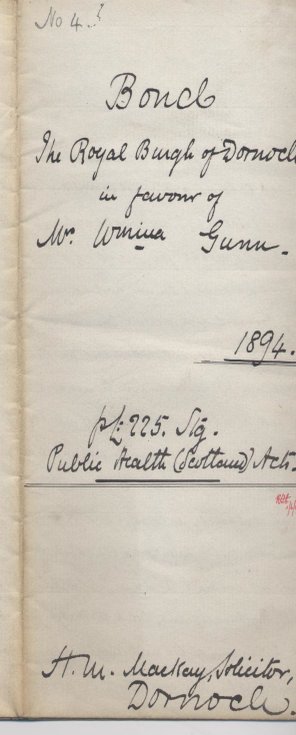 No 4.
Bond
The Royal Burgh of Dornoch
in favour of
Mrs. Gunn.
1894.
p £225. Stg.
Public Health (Scotland) Acts.
H. M. Mackay, Solicitor,
Dornoch.